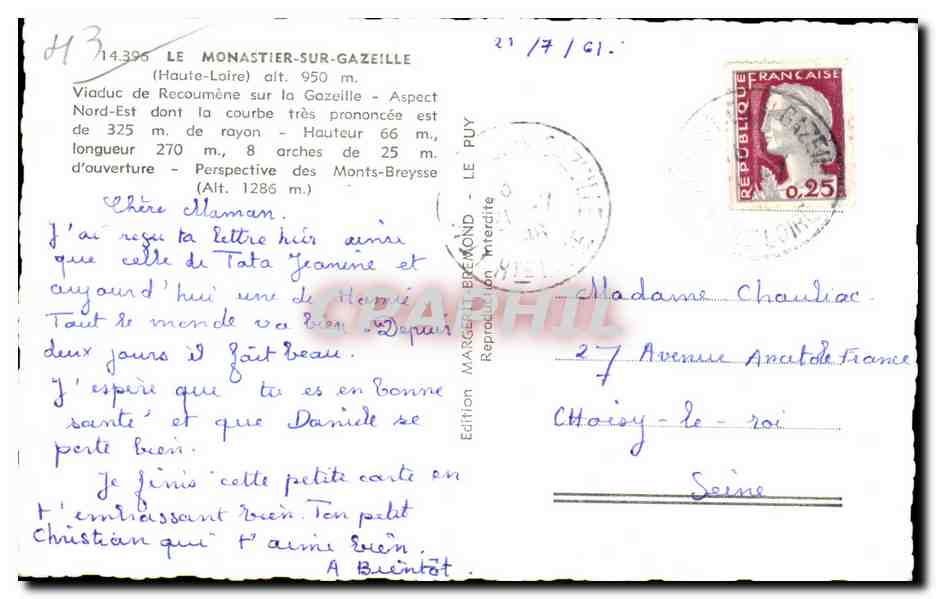 43
21/7/61.
14.396 LE MONASTIER-SUR-GAZEILLE
(Haute-Loire) alt. 950 m.
Viaduc de Recoumène sur la Gazeille - Aspect
Nord-Est dont la courbe très prononcée est
de 325 m. de rayon - Hauteur 66 m.,
longueur 270 m., 8 arches de 25 m.
d'ouverture - Perspective des Monts-Breysse
(Alt. 1286 m.)
Chère Maman.
J'ai reçu ta lettre hier ainsi
que celle de Tata Jeanine et
aujourd'hui une de Mamie
Tout le monde va bien. Depuis
deux jours il fait beau.
J'espère que tu es en bonne
santé et que Danièle se
porte bien.
Je finis cette petite carte en
t'embrassant bien. Ton petit
Christian qui t'aime bien.
A Bientôt.
Edition MARGERIT-BREMOND - LE PUY
Reproduction Interdite
REPUBLIQUE FRANCAISE
0,25
GAZEILLE
LOIRE
Madame Chauliac.
27 Avenue Anatole France
CHoisy-le-roi
Seine
CPARHIL